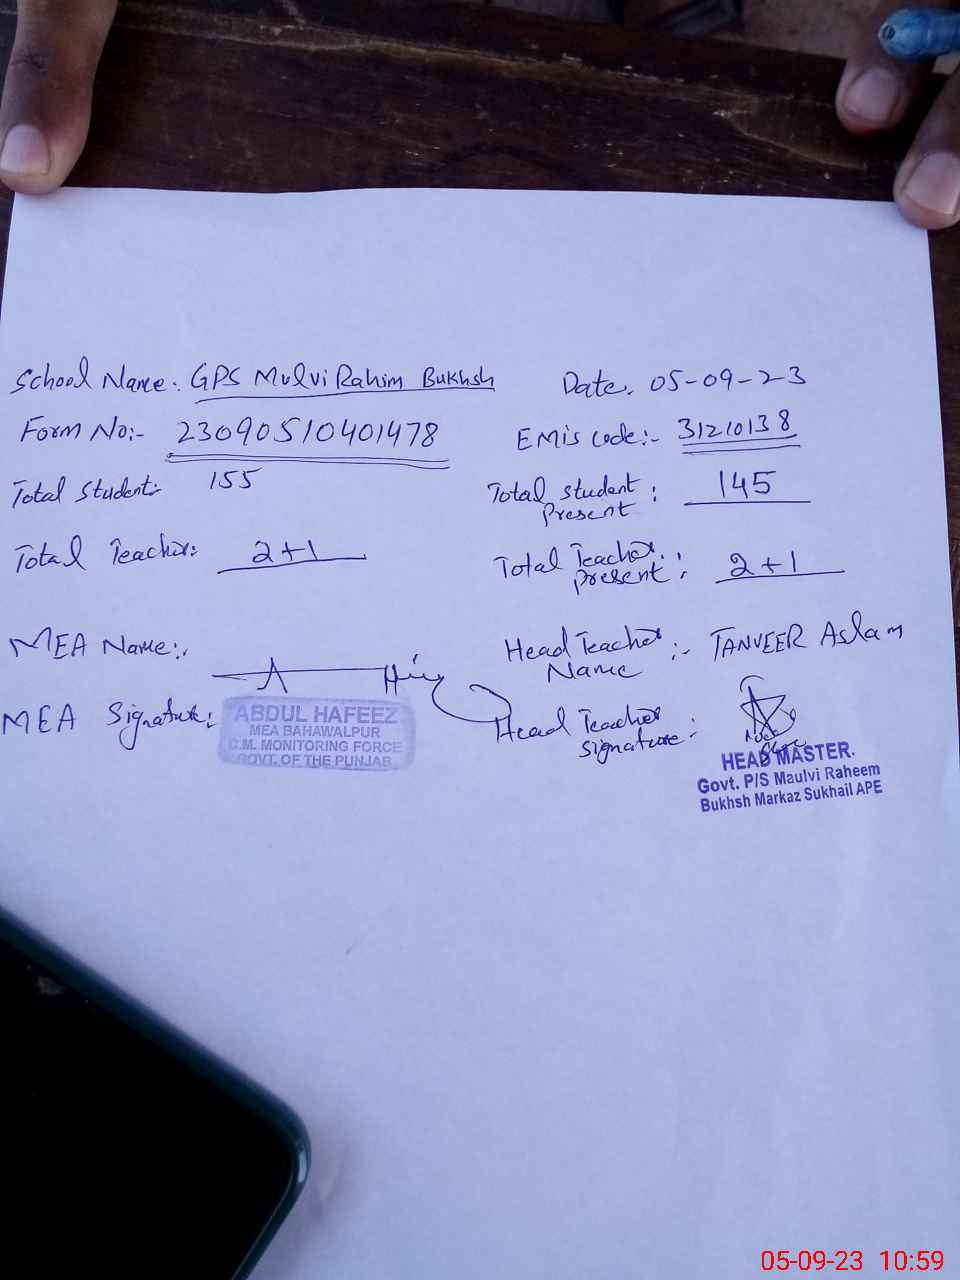 School Name: GPS Mulvi Rahim Bukhsh
Date. 05-09-23
Form No:- 23090510401478
EMIS Code:- 31210138
Total Student:- 155
Total Student Present: 145
Total Teacher: 2+1
Total Teacher Present: 2+1
MEA Name:
Head Teacher Name :- TANVEER Aslam
MEA Signature:
ABDUL HAFEEZ
MEA BAHAWALPUR
C.M. MONITORING FORCE
GOVT. OF THE PUNJAB
Head Teacher Signature:
HEAD MASTER.
Govt. P/S Maulvi Raheem
Bukhsh Markaz Sukhail APE
05-09-23 10:59